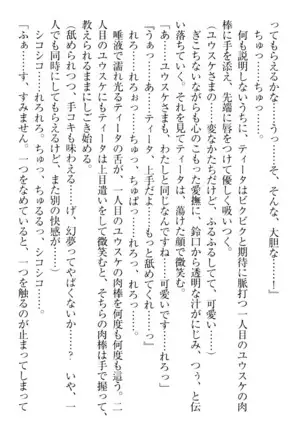 ってもらえるかな……うっ……そ、そんな、大胆な……！」
ちゅっ……ちゅっ……。
何も説明しないうちに、ティータはビクビクと期待に脈打つ一人目のユウスケの肉
棒に手を添え、先端に唇をつけて優しく吸いつく。
（ユウスケさまの……変なかたちだけど、ふるふるしてて、可愛い……）
ぎこちないながらも心のこもった愛撫に、鈴口から透明な汁がにじみ、つぅっ、と伝
い落ちていく。それを見てティータは、蕩けた顔で微笑む。
「あ……ユウスケさまも、わたしと同じなんですね……可愛いです……れろっ」
「うぁっ……あっ……ティータ、上手だよ……もっと舐めてくれ……っ」
れろ……れろぉっ……ちゅっ、ちゅぱっ……れろっ、れろっ……。
唾液で濡れ光るティータの舌が、一人目のユウスケの肉棒を何度も何度も這う。二
人目のユウスケにもティータは上目遣いをして微笑むと、そちらの肉棒は手で握って、
教えられるままにしごき始める。
（舐められつつ、手コキも味わえる……げ、幻夢ってやばくないか……？　いや、一
人でも同時にしてもらえるけど、また別の快感が……）
シコシコ……れろれろ。ちゅっ、ちゅるるっ……シコシコ……。
「ふぁ……す、すみません。一つをなめていると、一つを触るのが止まってしまって